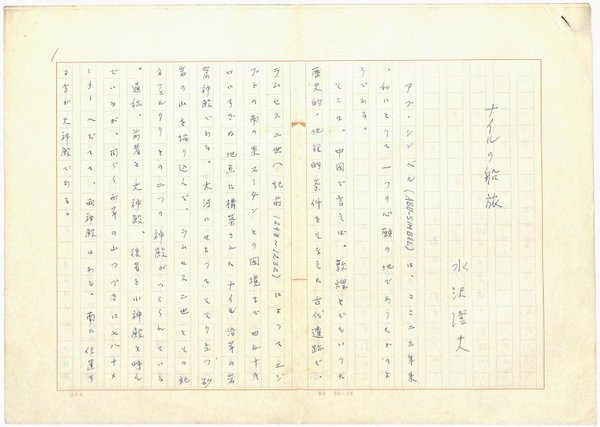 1
ナイルの船旅
水沢澄夫
アブ・シンベル(ABU-SIMBEL)は、ここ二三年来
、私にとって一つの心願の地であったかのよ
うである。
そこは、中国で言えば、敦煌とでもいった
歴史的、地理的条件をそなえた古代遺跡で、
ラムセス二世(紀前1298~1232)によってエジ
プトの南の果スーダンとの国境まで四五十キ
ロにすぎぬ地点に構築されたナイル沿岸の岩
窟神殿である。大河にせまってそそり立つ砂
岩の山を掘り込んで、ラムセス二世とその妃
ネフェルタリとの二つの神殿がつくられている
。通称、前者を大神殿、後者を小神殿と呼ん
でいるが、同じく西岸の山つづきに七八十メ
ーターへだてて、両神殿はある。南に位置す
る方が大神殿である。
20×20